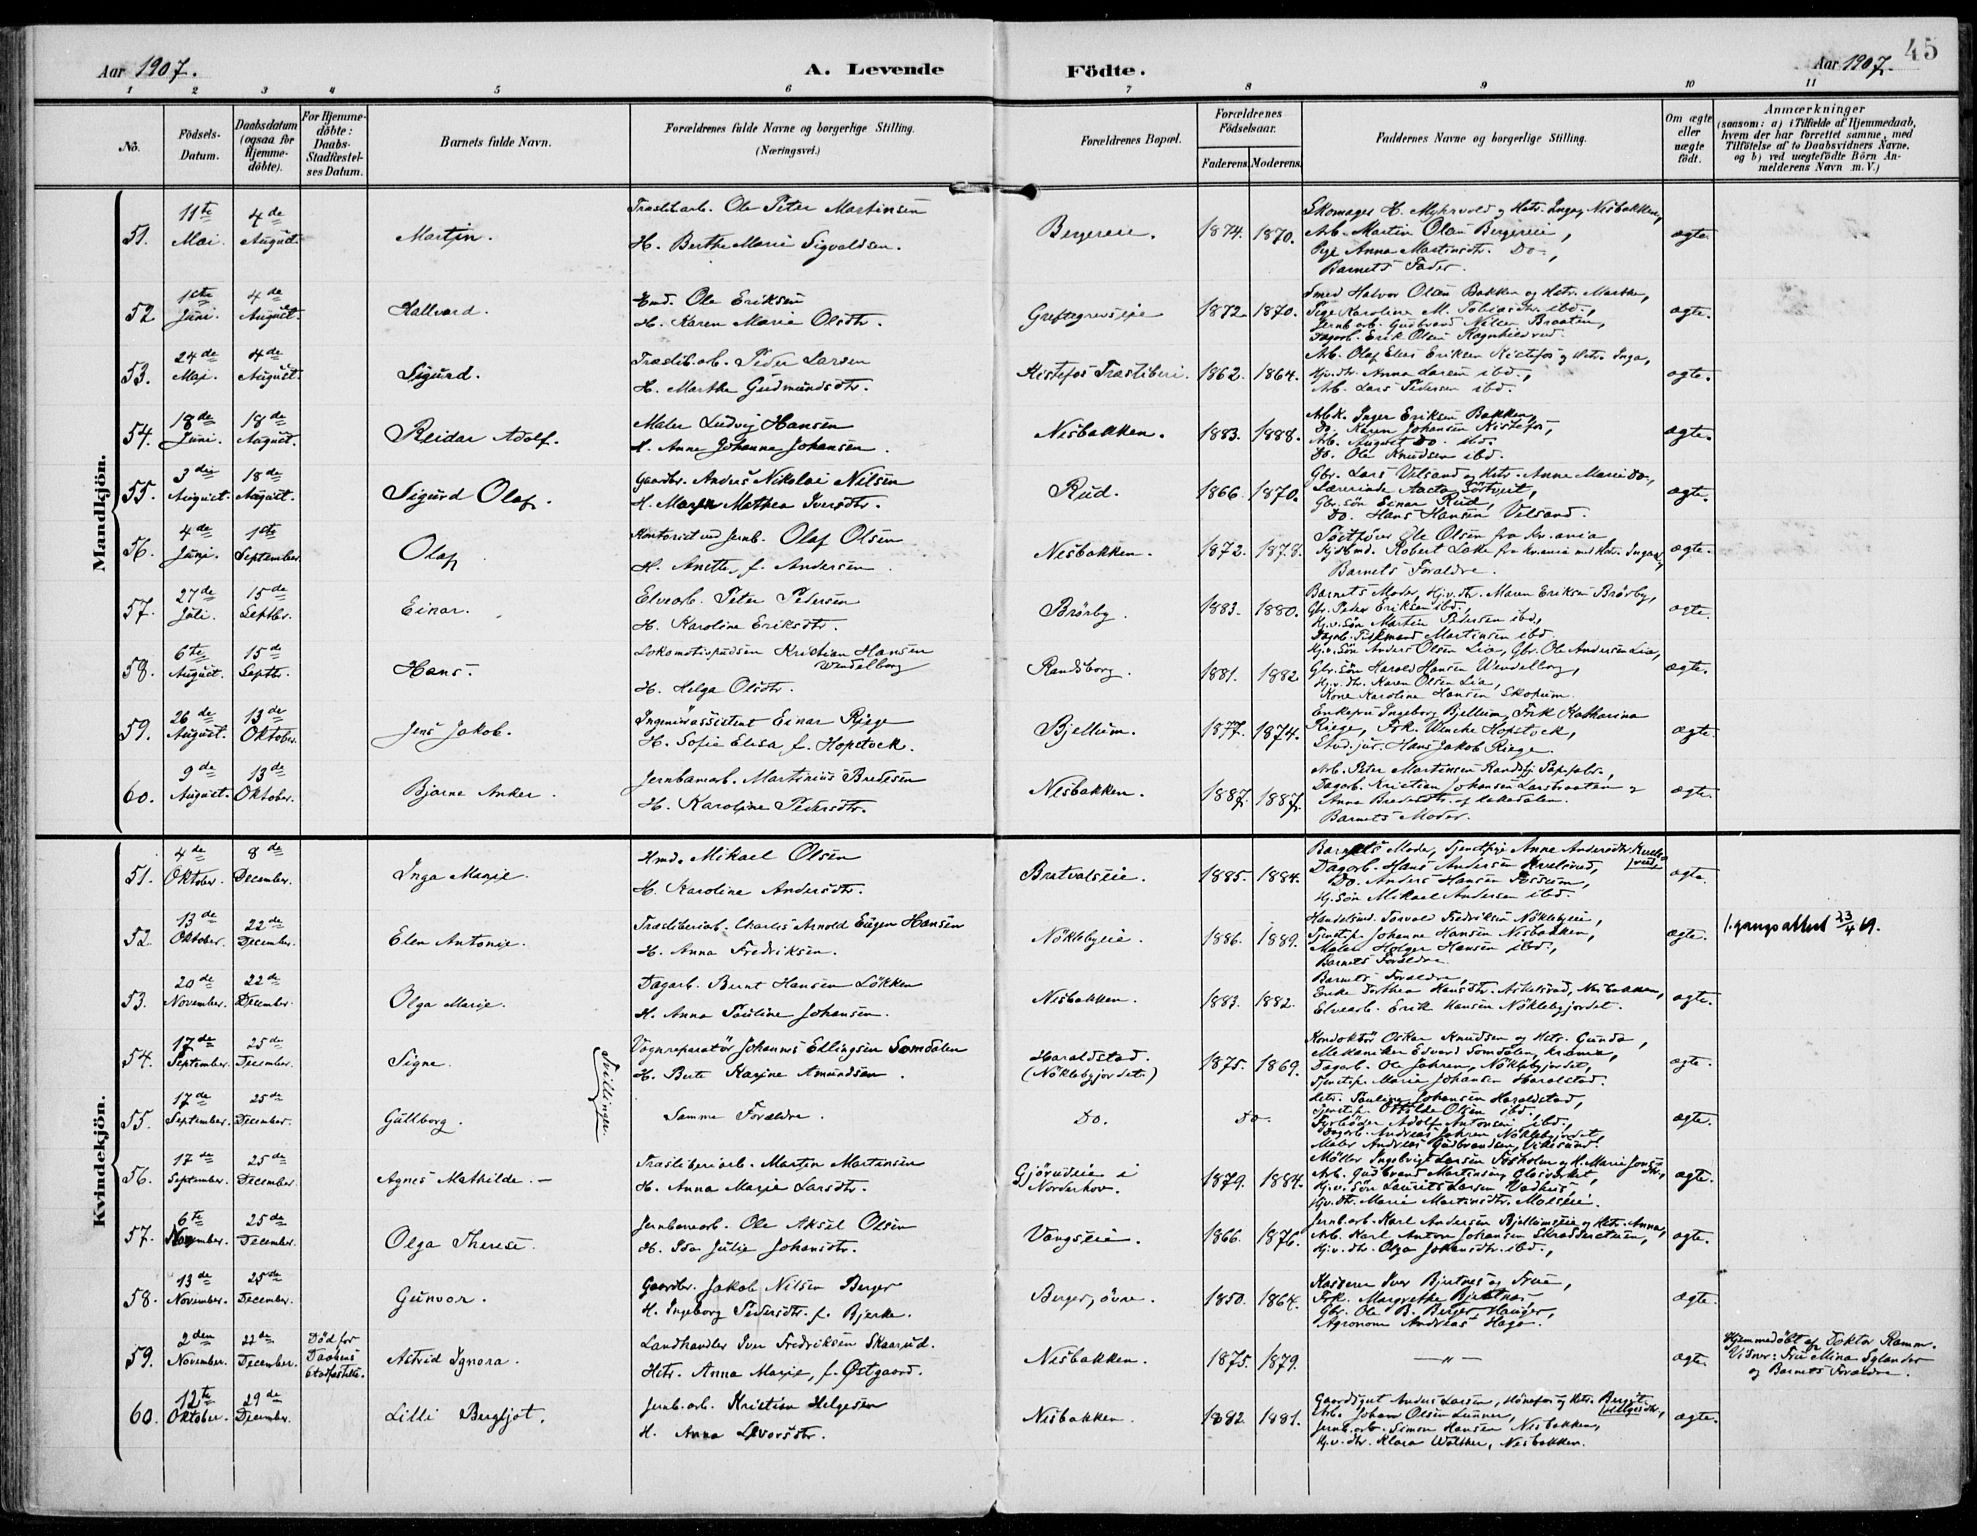 45
Aar 1907.
A. Levende
Födte.
Aar 1907.
1 2 3 4 5 6 7 8 9 10 11
No.
Födsels-
Datum.
Daabsdatum
(ogsaa for
Hjemme-
döbte).
For Hjemme-
döbte:
Daabs-
Stadfæstel-
ses Datum.
Barnets fulde Navn.
Forældrenes fulde Navne og borgerlige Stilling.
(Næringsvei.)
Forældrenes Bopæl.
Forældrenes
Födselsaar.
Faderens. Moderens.
Faddernes Navne og borgerlige Stilling.
Om ægte
eller
uægte
födt.
Anmærkninger
(saasom: a) i Tilfælde af Hjemmedaab,
hvem der har forrettet samme, med
Tilföielse af to Daabsvidners Navne.
og b) ved uægtefödte Börn An-
melderens Navn m. V.)
Mandkjön.
51. 11te Mai. 4de August. Martin.
Træslibarb. Ole Peter Martinsen
H. Berthe Marie Sigvaldsen.
Bergereie. 1874. 1870.
Skomager H. Myhrvold og Hstr. Inga, Nisbakken,
Arb. Martin Olsen Bergereie,
Pige Anna Martinsdtr. Do,
Barnets Fader.
ægte
52. 1ste Juni. 4de August. Hallvard.
Hmd. Ole Eriksen
H. Karen Marie Olsdtr.
Greftegrevseie 1872. 1870.
Smed Halvor Olsen Bakken og Hstr. Marthe,
Pige Karoline M. Tobiasdtr. ibd.,
Jernb. arb. Gudbrand Nilsen Braaten,
Dagarb. Erik Olsen Ragnhildrud.
ægte.
53. 24de Mai. 4de August. Sigurd.
Træslib. arb. Peder Larsen
H. Marthe Gudmundsdtr.
Kistefos Træsliberi. 1862. 1864.
Arb. Olaf Elias Eriksen Kistefos og Hstr. Inga,
Hjv. dtr. Anna Larsen ibd.,
Arb. Lars Pedersen ibd.
ægte.
54. 18de Juni. 18de August. Reidar Adolf.
Maler Ludvig Hansen
H. Anne Johanne Johansen.
Nisbakken. 1883. 1888.
Arb.k. Inger Eriksen Bakken,
Do. Karen Johansen Kistefos,
Arb. August Do. ibd.
Do. Ole Knudsen ibd.
ægte.
55. 3die August. 18de August. Sigurd Olaf.
Gaardbr. Anders Nikolai Nilsen
H. Maren Mathea Iversdtr.
Rud. 1866. 1870.
Gbr. Lars Velsand og Hstr. Anne Marie Do.,
Lærerinde Aasta Sörtveit,
Gbr. sön Einar Rud,
Do. Hans Hansen Velsand.
ægte.
56. 4de Juni. 1ste September. Olaf.
Kontorist ved Jernb. Olaf Olsen
H. Anitte, f. Andersen.
Nisbakken. 1872. 1878.
Ole Olsen fra Kr.ania
Robert Lake fra Kr.ania med Hstr. Inga,
Barnets Forældre.
ægte.
57. 27de Juli. 15de Septbr. Einar.
Elvearb. Peter Pedersen
H. Karoline Eriksdtr.
Brörby. 1883. 1880.
Barnets Moder, Hj.v. dtr. Maren Eriksen Brörby,
Gbr. Peter Eriksen ibd.,
Hj.v. Sön Martin Pedersen ibd.,
Dagarb. Martinsen ibd.
ægte
58. 6te August. 15de Septbr. Hans.
Lokomotivpudser Kristian Hansen
Wendelborg
H. Helga Olsdtr.
Randsborg. 1881. 1882
Hj.v. Sön Anders Olsen Lia, Gbr. Ole Andersen Lia,
Gbr. sön Harald Hansen Wendelborg,
Hj.v. dtr. Karen Olsen Lia,
Kone Karoline Hansen Skopum.
ægte.
59. 26de August. 13de Oktober. Jens Jakob.
Ingeniörassistent Einar Riege
H. Sofie Elisa, f. Hopstock.
Bjellum. 1877. 1874.
Enkefru Ingeborg Bjellum, Frk Katharina
Riege, Frk. Wenche Hopstock,
Stud. jur. Hans Jakob Riege.
ægte
60. 9de August. 13de Oktober. Bjarne Anker.
Jernbanarb. Martinius Bredesen
H. Karoline Pedersdtr.
Nisbakken. 1887. 1887.
Arb. Peter Martinsen Randsfj. Papirfabr.,
Dagarb. Kristian Johansen Larsbraaten og
Anna Bredesdtr. af Hakadalen.
Barnets Moder.
ægte.
Kvindekjön.
51. 4de Oktober. 8de December. Inga Marie.
Hmd. Mikael Olsen
H. Karoline Andersdtr.
Bratvalseie. 1885. 1884.
Barnets Moder, Tjenstpige Anne Andersdtr.
Dagarb. Hans Andersen
Do. Anders Hansen Fossum,
Hj. Sön Mikael Andersen ibd.
ægte.
52. 13de Oktober. 22de December. Elen Antonie.
Træsliberiarb. Charles Arnold Eugen Hansen
H. Anna Fredriksen.
Nöklebyeie. 1886. 1889.
Handelsmd. Torvald Fredriksen Nöklebyeie,
Tjenstp. Johanne Hansen Nisbakken,
Maler Holger Hansen ibd.,
Barnets Forældre.
ægte. 1. gangs attest 23/4 69.
53. 20de November. 22de December. Olga Marie.
Dagarb. Bernt Hansen Lökken
H. Anna Pauline Johansen.
Nisbakken. 1883. 1882.
Barnets Forældre,
Enke Dorthea Hansdtr. Askelsrud, Nisbakken,
Elvearb. Erik Hansen Nöklebyjordet.
ægte.
54. 17de September. 25de December. Signe.
Tvillinger.
Vognreparatör Johannes Ellingsen Somdalen
H. Berte Karine Amundsen.
Haraldstad.
(Nöklebyjordet.)
1875. 1869.
Konduktör Oskar Knudsen og Hstr. Gunda,
Mekaniker Edvard Somdalen, Kr.ania,
Dagarb. Ole Jahren, Nöklebyjordet,
Tjenstp. Marie Johansen Haraldstad.
ægte.
55. 17de September. 25de December. Gullborg.
Samme Forældre.
Do. Do
Hstr. Pauline Johansen Haraldstad,
Tjenstp. Othilde Olsen ibd.
Fyrböder Adolf Antonsen ibd.,
Dagarb. Andreas Jahren Nöklebyjordet
Maler Andreas Gudbrandsen, Vikersund.
ægte.
56. 17de September. 25de December. Agnes Mathilde. —
Træsliberiarb. Martin Martinsen
H. Anna Marie Larsdtr.
Gjörudeie i
Norderhov.
1879. 1884.
Möller Ingebrigt Larsen Foskolm og H. Marie Jonsdtr,
Arb. Gudbrand Martinsen, Glasværket,
Hj.v. Sön Laurits Larsen Vadhus,
Hj.v. dtr. Marie Martinsdtr. Moeseie.
ægte.
57. 6te November. 25de December. Olga Therese.
Jernbanearb. Ole Aksel Olsen
H. Ida Julie Johansdtr.
Vangseie. 1866. 1876.
Jernb. arb. Karl Andersen Bjellumseie og Hstr. Anna,
Arb. Karl Anton Johansen Skrædderstuen,
Hj.v. dtr. Olga Johansdtr. ibd.,
ægte.
58. 13de November. 25de December. Gunvor.
Gaardbr. Jakob Nilsen Berger
H. Ingeborg Pedersdtr. f. Bjerke.
Berger, övre. 1850. 1864.
Kasserer Iver Bjertnes og Frue,
Frk. Margrethe Bjertnes
Gbr. Ole B. Berger, Hauger,
Agronom Andreas Haga.
ægte.
59. 2den November. 22de December. Död för Daabens Stadfæstelse. Astrid Ignora.
Landhandler Iver Fredriksen Skaarud.
Hstr. Anna Marie, f. Østgaard.
Nisbakken. 1875. 1879. — " —
ægte.
Hjemmedöbt af Doktor Ramm.
Vidner: Fru Mina Sylander
og Barnets Forældre.
60. 12te Oktober. 29de December. Lilli Bergljot.
Jernb. arb. Kristian Helgesen
H. Anna Levorsdtr.
Nisbakken. 1882 1881.
Gaardsgut Anders Larsen, Hönefos og Hstr. Bergit
Helgesdtr,
Arb. Johan Olsen Lunner,
Jernb. arb. Simon Hansen Nisbakken,
Hj.v. dtr. Klara Walther, Nisbakken.
ægte.